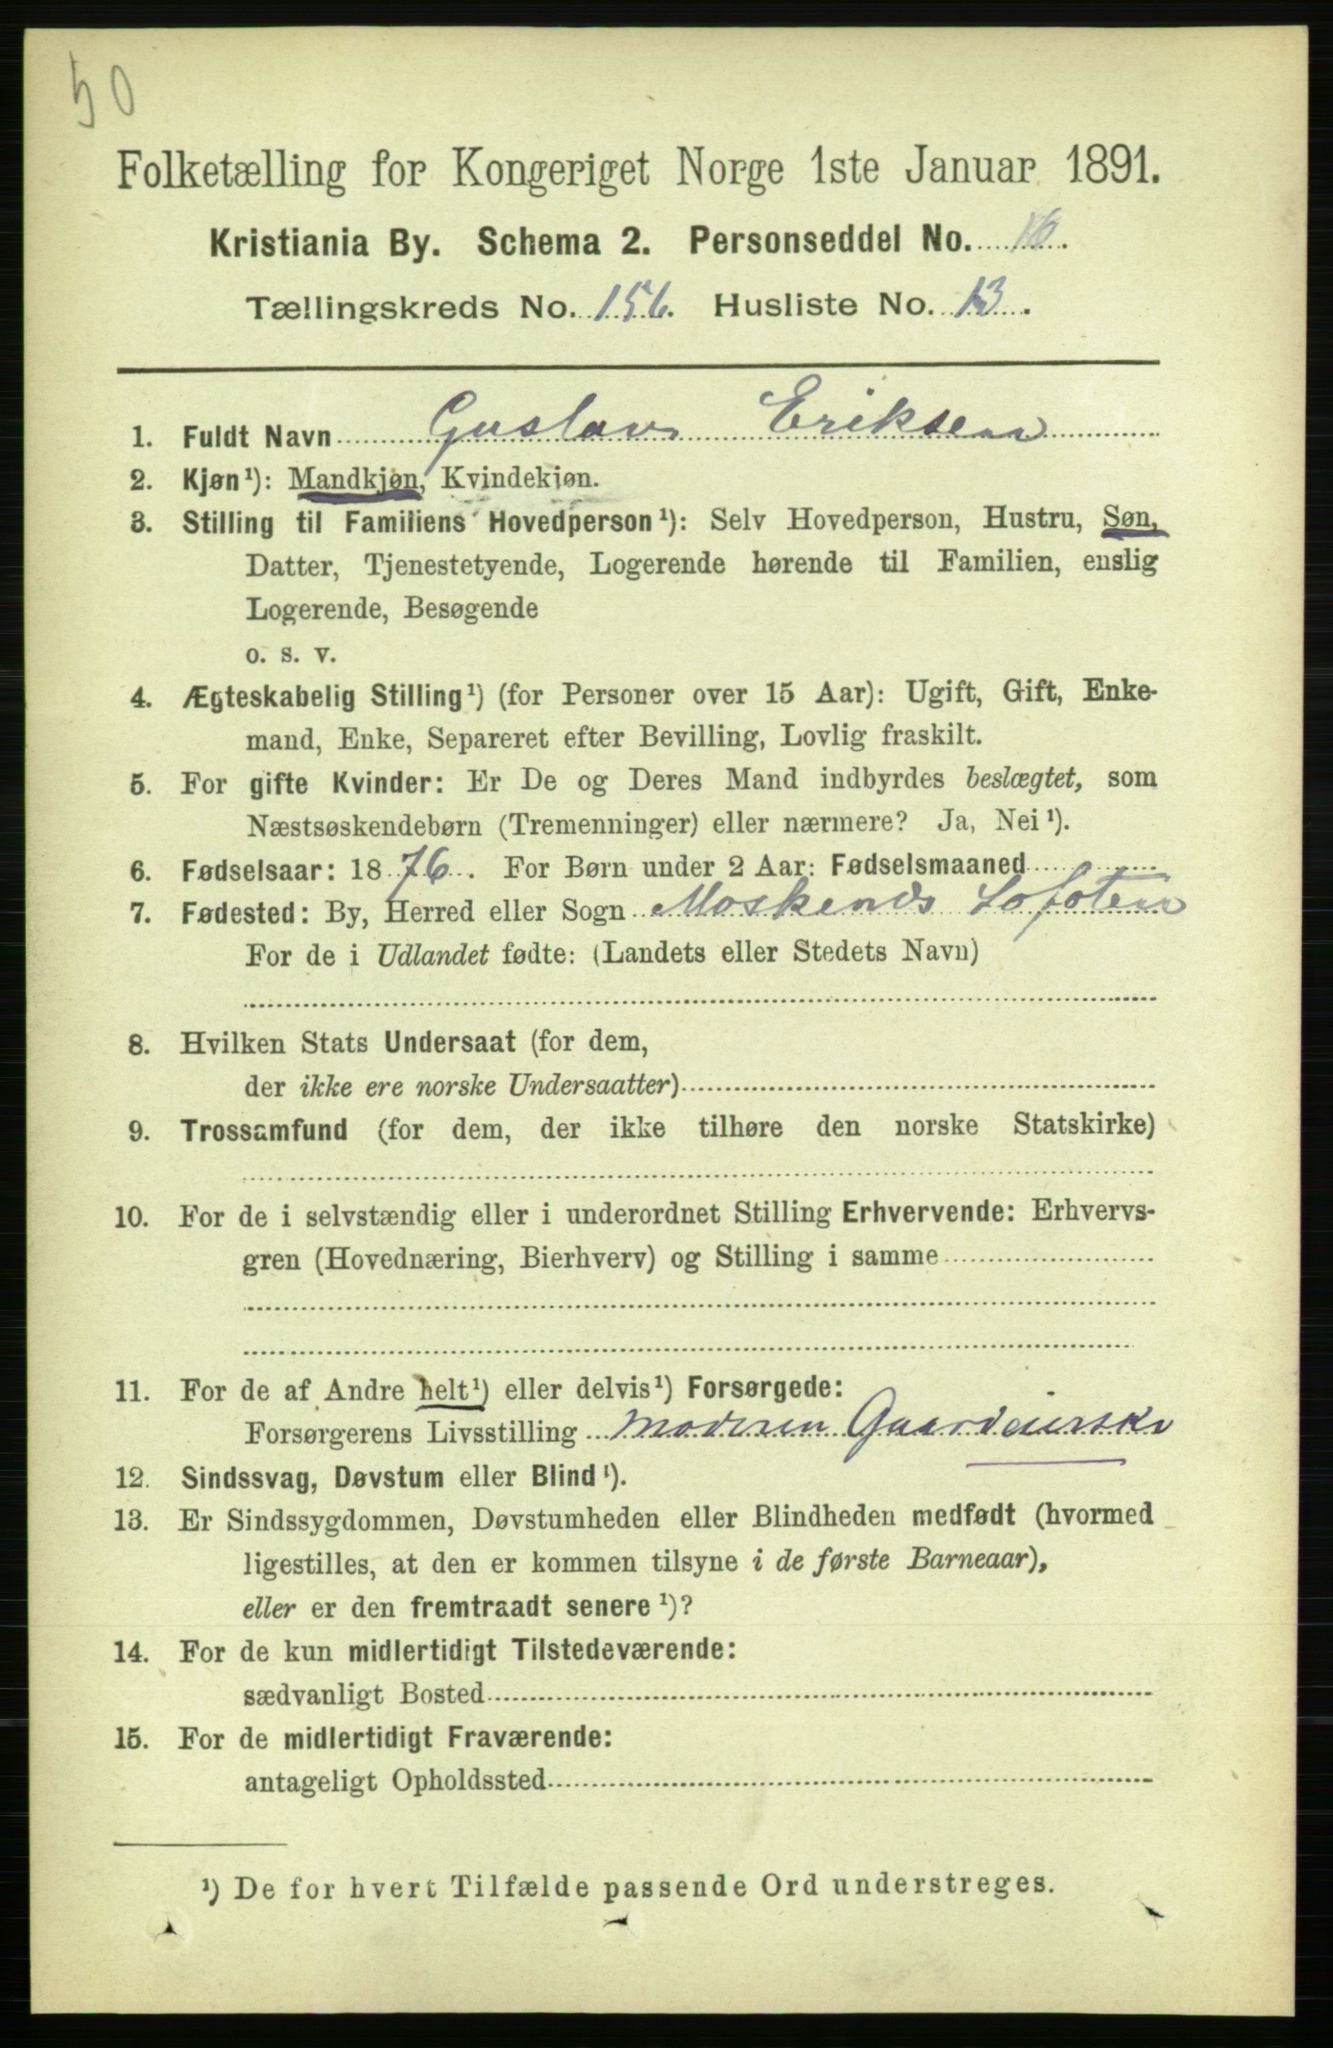 50
Folketælling for Kongeriget Norge 1ste Januar 1891.
Kristiania By. Schema 2. Personseddel No. 16.
Tællingskreds No. 156. Husliste No. 13.
1. Fuldt Navn Gustav Eriksen
2. Kjøn¹): Mandkjøn, Kvindekjøn.
3. Stilling til Familiens Hovedperson¹): Selv Hovedperson, Hustru, Søn,
Datter, Tjenestetyende, Logerende hørende til Familien, enslig
Logerende, Besøgende
o. s. v.
4. Ægteskabelig Stilling¹) (for Personer over 15 Aar): Ugift, Gift, Enke-
mand, Enke, Separeret efter Bevilling, Lovlig fraskilt.
5. For gifte Kvinder: Er De og Deres Mand indbyrdes beslægtet, som
Næstsøskendebørn (Tremenninger) eller nærmere? Ja, Nei¹).
6. Fødselsaar: 1876. For Børn under 2 Aar: Fødselsmaaned
7. Fødested: By, Herred eller Sogn Moskenæs Lofoten
For de i Udlandet fødte: (Landets eller Stedets Navn)
8. Hvilken Stats Undersaat (for dem,
der ikke ere norske Undersaatter)
9. Trossamfund (for dem, der ikke tilhøre den norske Statskirke)
10. For de i selvstændig eller i underordnet Stilling Erhvervende: Erhvervs-
gren (Hovednæring, Bierhverv) og Stilling i samme
11. For de af Andre helt¹) eller delvis¹) Forsørgede:
Forsørgerens Livsstilling Moderen Gaardeierske
12. Sindssvag, Døvstum eller Blind¹).
13. Er Sindssygdommen, Døvstumheden eller Blindheden medfødt (hvormed
ligestilles, at den er kommen tilsyne i de første Barneaar),
eller er den fremtraadt senere¹)?
14. For de kun midlertidigt Tilstedeværende:
sædvanligt Bosted
15. For de midlertidigt Fraværende:
antageligt Opholdssted
¹) De for hvert Tilfælde passende Ord understreges.